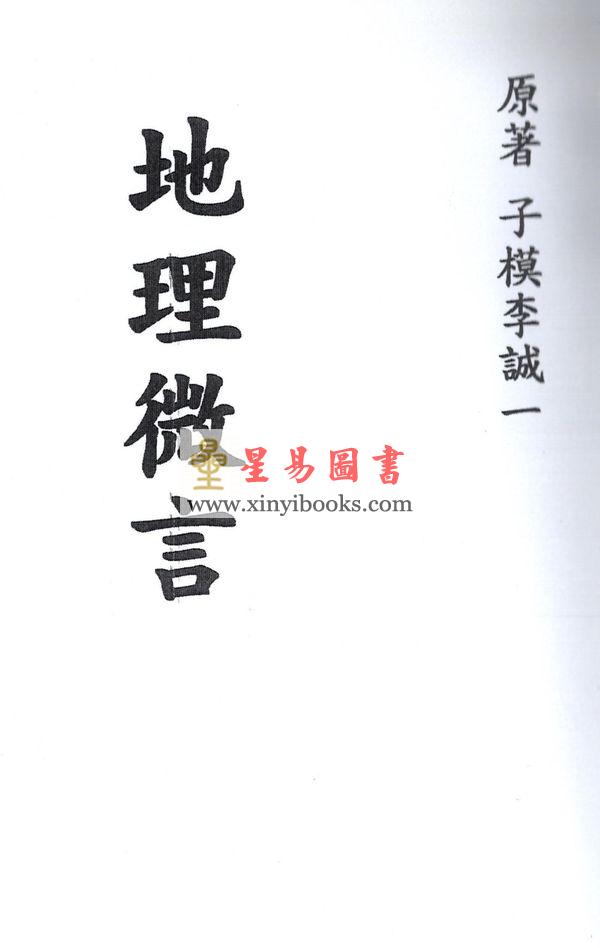 原著 子模李誠一
地理微言
星易圖書
www.xinyibooks.com